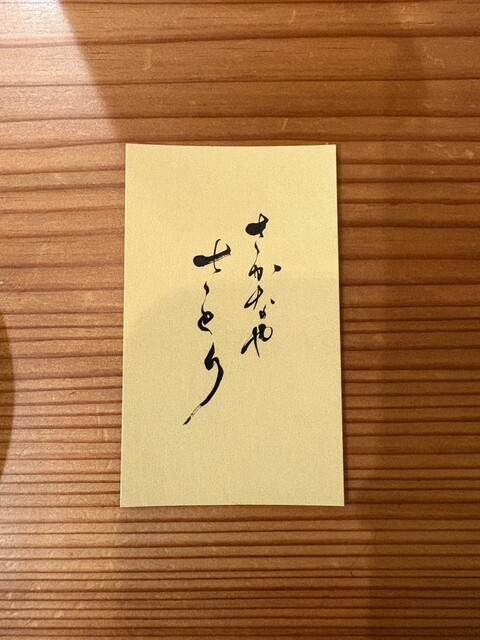 さかなや
さとり